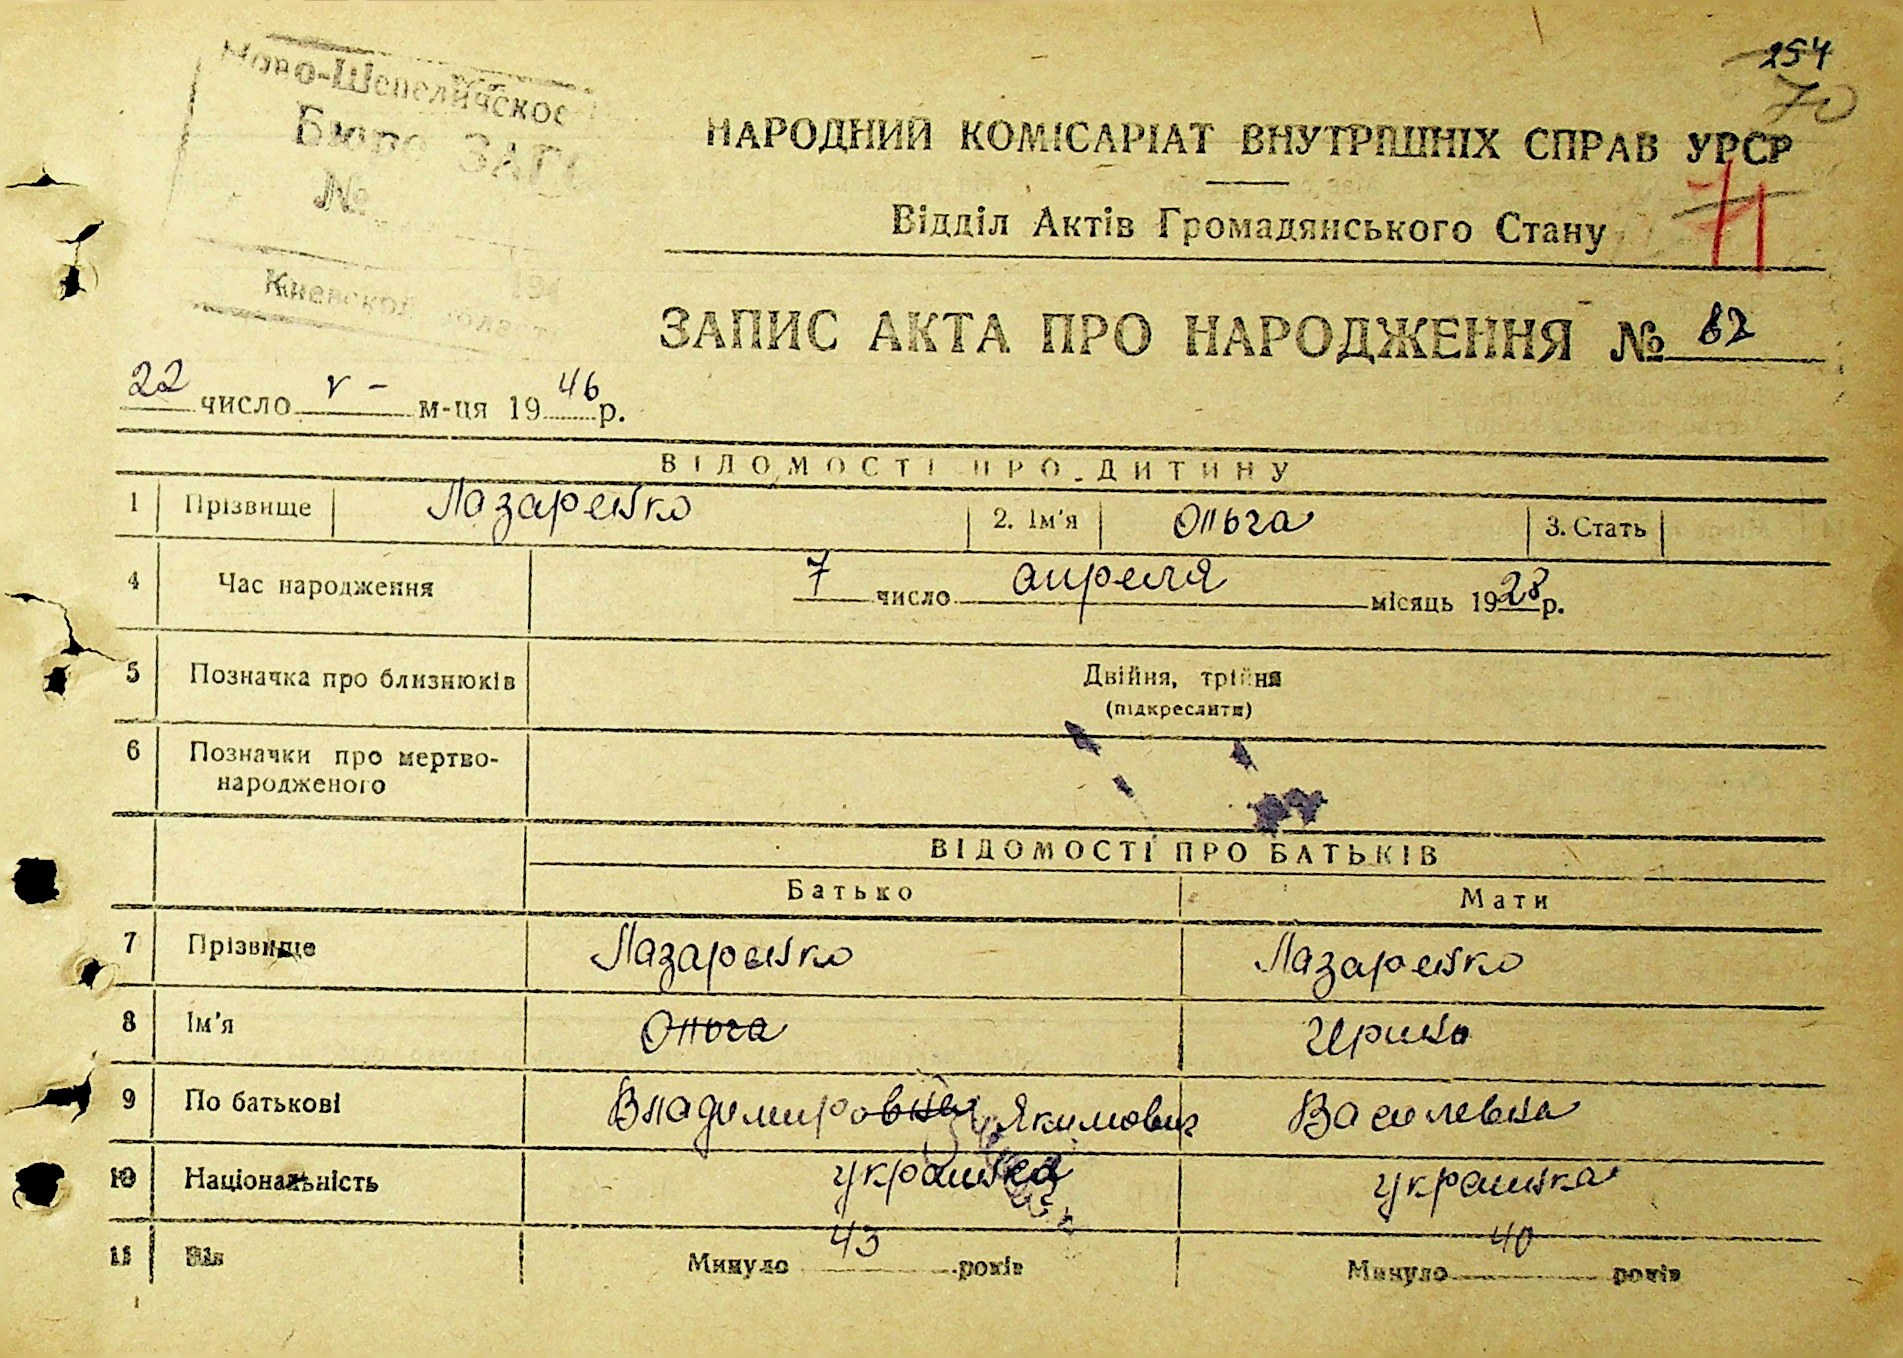 254
70
71
Ново-Шепеличское
Бюро ЗАГС
№
Киевской област
НАРОДНИЙ КОМІСАРІАТ ВНУТРІШНІХ СПРАВ УРСР
Відділ Актів Громадянського Стану
ЗАПИС АКТА ПРО НАРОДЖЕННЯ № 82
22 число V - м-ця 1946 р.
ВІДОМОСТІ ПРО ДИТИНУ
1 Прізвище Лазаренко 2. Ім'я Ольга 3. Стать
4 Час народження 7 число апреля місяць 1928 р.
5 Позначка про близнюків Двійня, трійня
(підкреслити)
6 Позначки про мертво-
народженого
ВІДОМОСТІ ПРО БАТЬКІВ
Батько Мати
7 Прізвище Лазаренко Лазаренко
8 Ім'я Ольга Ирина
9 По батькові Владимировна Якимович Василевна
10 Національність украинка украинка
11 Вік Минуло 43 років Минуло 40 років